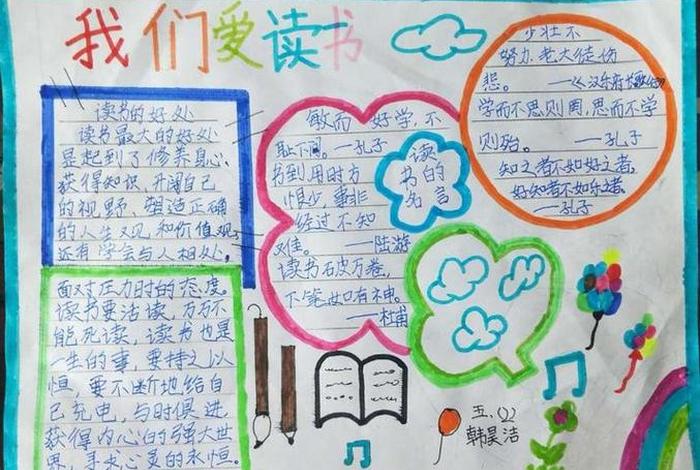 我们爱读书
读书的好处
读书最大的好处
是起到了修养身心、
获得知识、开阔自己
的视野、塑造正确
的人生观和价值观,
还有学会与人相处。
面对压力时的态度。
读书要活读,万万不
能死读,读书也是
一生的事,要持之以
恒,要不断地给自
己充电,与时俱进
获得内心的强大世
界,寻求心灵的永恒。
敏而好学,不
耻下问。—孔子
书到用时方
恨少,事非
经过不知
难。—陆游
读书破万卷,
下笔如有神。
—杜甫
读
书的
名言
少壮不
努力,老大徒伤
悲。—《汉乐府长歌行》
学而不思则罔,思而不学
则殆。—孔子
知之者不如好之者,
好知者不如乐之者。
—孔子
五、
韩昊洁